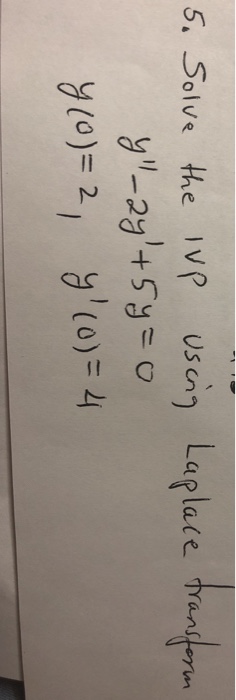 5. Solve the IVP using Laplace transform
y" - 2y' + 5y = 0
y(0) = 2, y'(0) = 4